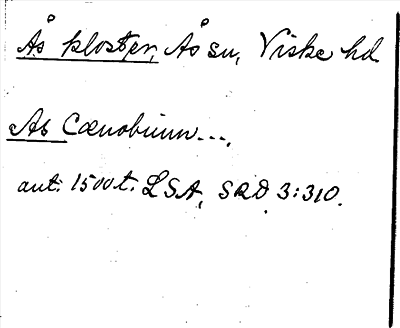 Ås kloster, Ås sn, Viske hd
As Cœnobium...,
ant. 1500t. LSA, SRD 3:310.